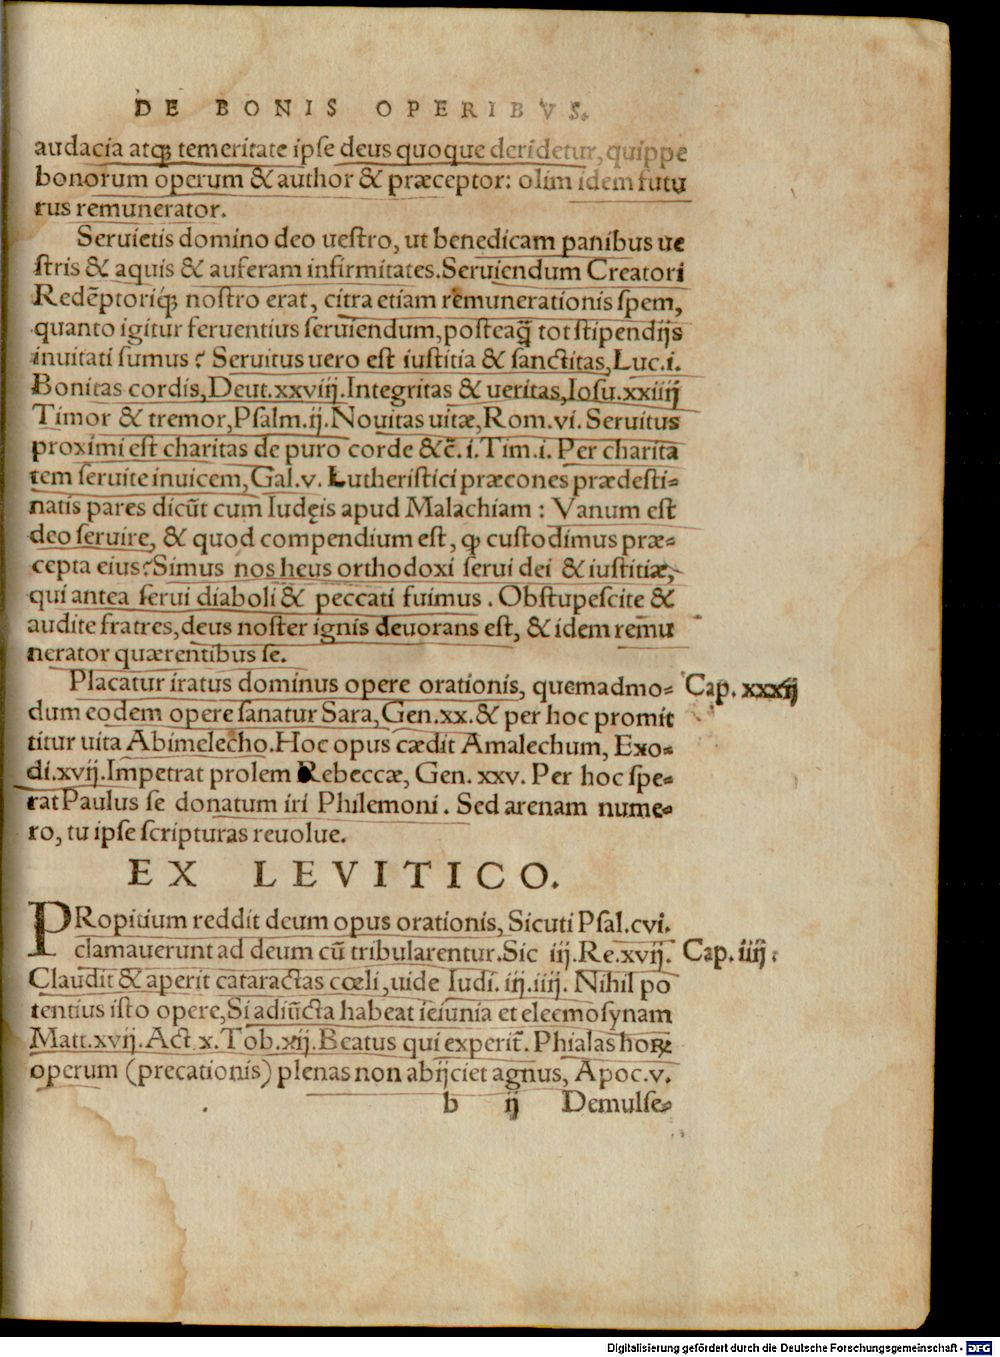 DE BONIS OPERIBVS.
audacia atq; temeritate ipse deus quoque deridetur, quippe
bonorum operum & author & præceptor: olim idem futu
rus remunerator.
Seruietis domino deo uestro, ut benedicam panibus ue
stris & aquis & auferam infirmitates. Seruiendum Creatori
Redẽptoriq; nostro erat, citra etiam remunerationis spem,
quanto igitur feruentius seruiendum, posteaq̃ tot stipendijs
inuitati sumus? Seruitus uero est iustitia & sanctitas, Luc.i.
Bonitas cordis, Deut.xxviij. Integritas & ueritas, Iosu.xxiiij
Timor & tremor, Psalm.ij. Nouitas uitæ, Rom.vi. Seruitus
proximi est charitas de puro corde &c̃. i. Tim.i. Per charita
tem seruite inuicem, Gal.v. Lutheristici præcones prædesti=
natis pares dicũt cum Iudęis apud Malachiam: Vanum est
deo seruire, & quod compendium est, ꝙ custodimus præ=
cepta eius? Simus nos heus orthodoxi serui dei & iustitiæ,
qui antea serui diaboli & peccati fuimus. Obstupescite &
audite fratres, deus noster ignis deuorans est, & idem remu
nerator quærentibus se.
Placatur iratus dominus opere orationis, quemadmo= Cap. xxxij
dum eodem opere sanatur Sara, Gen.xx. & per hoc promit
titur uita Abimelecho. Hoc opus cædit Amalechum, Exo=
di.xvij. Impetrat prolem Rebeccæ, Gen. xxv. Per hoc spe=
rat Paulus se donatum iri Philemoni. Sed arenam nume=
ro, tu ipse scripturas reuolue.
EX LEVITICO.
PRopitium reddit deum opus orationis, Sicuti Psal.cvi.
clamauerunt ad deum cũ tribularentur. Sic iij. Re.xvij. Cap. iiij.
Claudit & aperit cataractas cœli, uide Iudi. iij. iiij. Nihil po
tentius isto opere, Si adiũcta habeat ieiunia et eleemosynam
Matt.xvij. Act x. Tob.xij. Beatus qui experit̃. Phialas hoꝝ
operum (precationis) plenas non abijciet agnus, Apoc.v.
b ij Demulse=
Digitalisierung gefördert durch die Deutsche Forschungsgemeinschaft - DFG